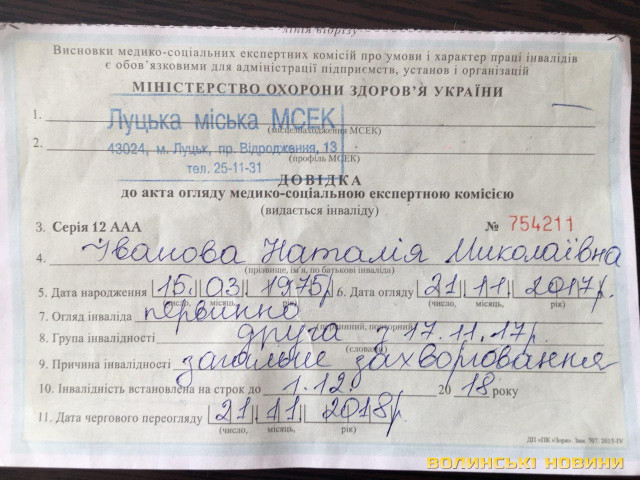 лінія відрізу
Висновки медико-соціальних експертних комісій про умови і характер праці інвалідів
є обов'язковими для адміністрації підприємств, установ і організацій
МІНІСТЕРСТВО ОХОРОНИ ЗДОРОВ'Я УКРАЇНИ
Луцька міська МСЕК
1.
(місцезнаходження МСЕК)
43024, м. Луцьк, пр. Відродження, 13
2.
(профіль МСЕК)
тел. 25-11-31
ДОВІДКА
до акта огляду медико-соціальною експертною комісією
(видається інваліду)
3. Серія 12 ААА № 754211
4. Іванова Наталія Миколаївна
(прізвище, ім'я, по батькові інваліда)
5. Дата народження 15. 03 1975р 6. Дата огляду 21 11 2017р.
(число, місяць, рік) (число, місяць, рік)
7. Огляд інваліда первинно
(первинний, повторний)
8. Група інвалідності друга з 17.11.17р.
(словами)
9. Причина інвалідності загальне захворювання
10. Інвалідність встановлена на строк до 1.12. 20 18 року
11. Дата чергового переогляду 21 11 2018р
(число, місяць, рік)
ДП «ПК «Зоря». Зам. 707. 2015-IV
ВОЛИНСЬКІ НОВИНИ